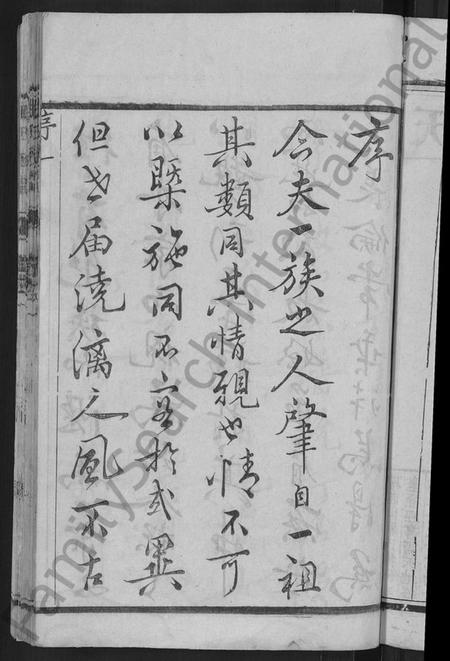 序
今夫一族之人肇自一祖
其類同其情親也情不可
以槩施同不容於或異
但世届澆漓之風不古
序一
FamilySearch International